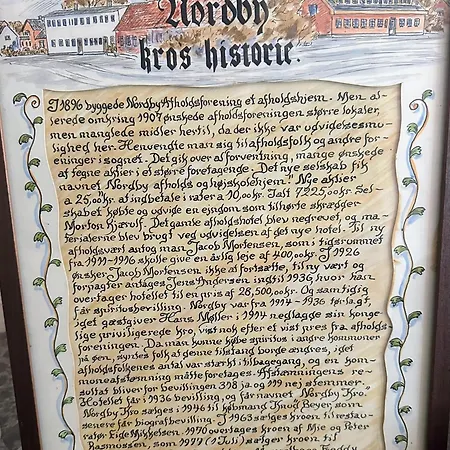 Nordby
kros historie.
I 1896 byggede Nordby Afholdsforening et afholdshjem. Men al-
lerede omkring 1907 ønskede afholdsforeningen større lokaler,
men manglede midler hertil, da der ikke var udvidelsesmu-
lighed her. Henvendte man sig til afholdsfolk og andre for-
eninger i sognet. Det gik over al forventning, mange ønskede
at tegne aktier i et større foretagende. Det nye selskab fik
navnet Nordby afholds og højskolehjem." Nye aktier
a 25,00kr. at indbetale i rater a 10,00kr. Ialt 7225,00kr. Sel-
skabet købte og udvide en ejendom som tilhørte skrædder
Morton Kjærulf. Det gamle afholdshotel blev negrevet, og ma-
terialerne blev brugt ved udvidelsen af det nye hotel. Til ny
afholdsvært antog man Jacob Mortensen, som i tidsrummet
fra 1911-1916 skulle give en årlig leje af 400,00kr. I 1926
ønsker Jacob Mortensen ikke at fortsætte, til ny vært og
forpagter antages Jens Andersen indtil 1936 hvor han
overtager hotellet til en pris af 28,500,00kr. Og samtidig
får spiritusbevilling. Nordby var fra 1914-1936 tørlagt,
idet gæstgiver Hans Møller i 1914 nedlagde sin konge-
lige priviligerede kro, vist nok efter et vist pres fra afholds-
foreningen. Da man kunne købe spiritus i andre kommuner
på øen, syntes folk at denne tilstand burde ændres, idet
afholdsfolkenes antal var stærkt i tilbagegang, og en kom-
muneafstemning måtte foretages. Afstemningens re-
sultat bliver for bevillingen 398 ja og 119 nej stemmer.
Hotellet får i 1936 bevilling, og får navnet "Nordby Kro."
Nordby Kro sælges i 1946 til købmand Knud Beyer, som
senere får biografbevilling. I 1963 sælges kroen til restau-
ratør Eige Mikkelsen. 1970 overtages kroen af Mie og Peter
Rasmussen, som 1977 (1 Juli) sælger kroen til